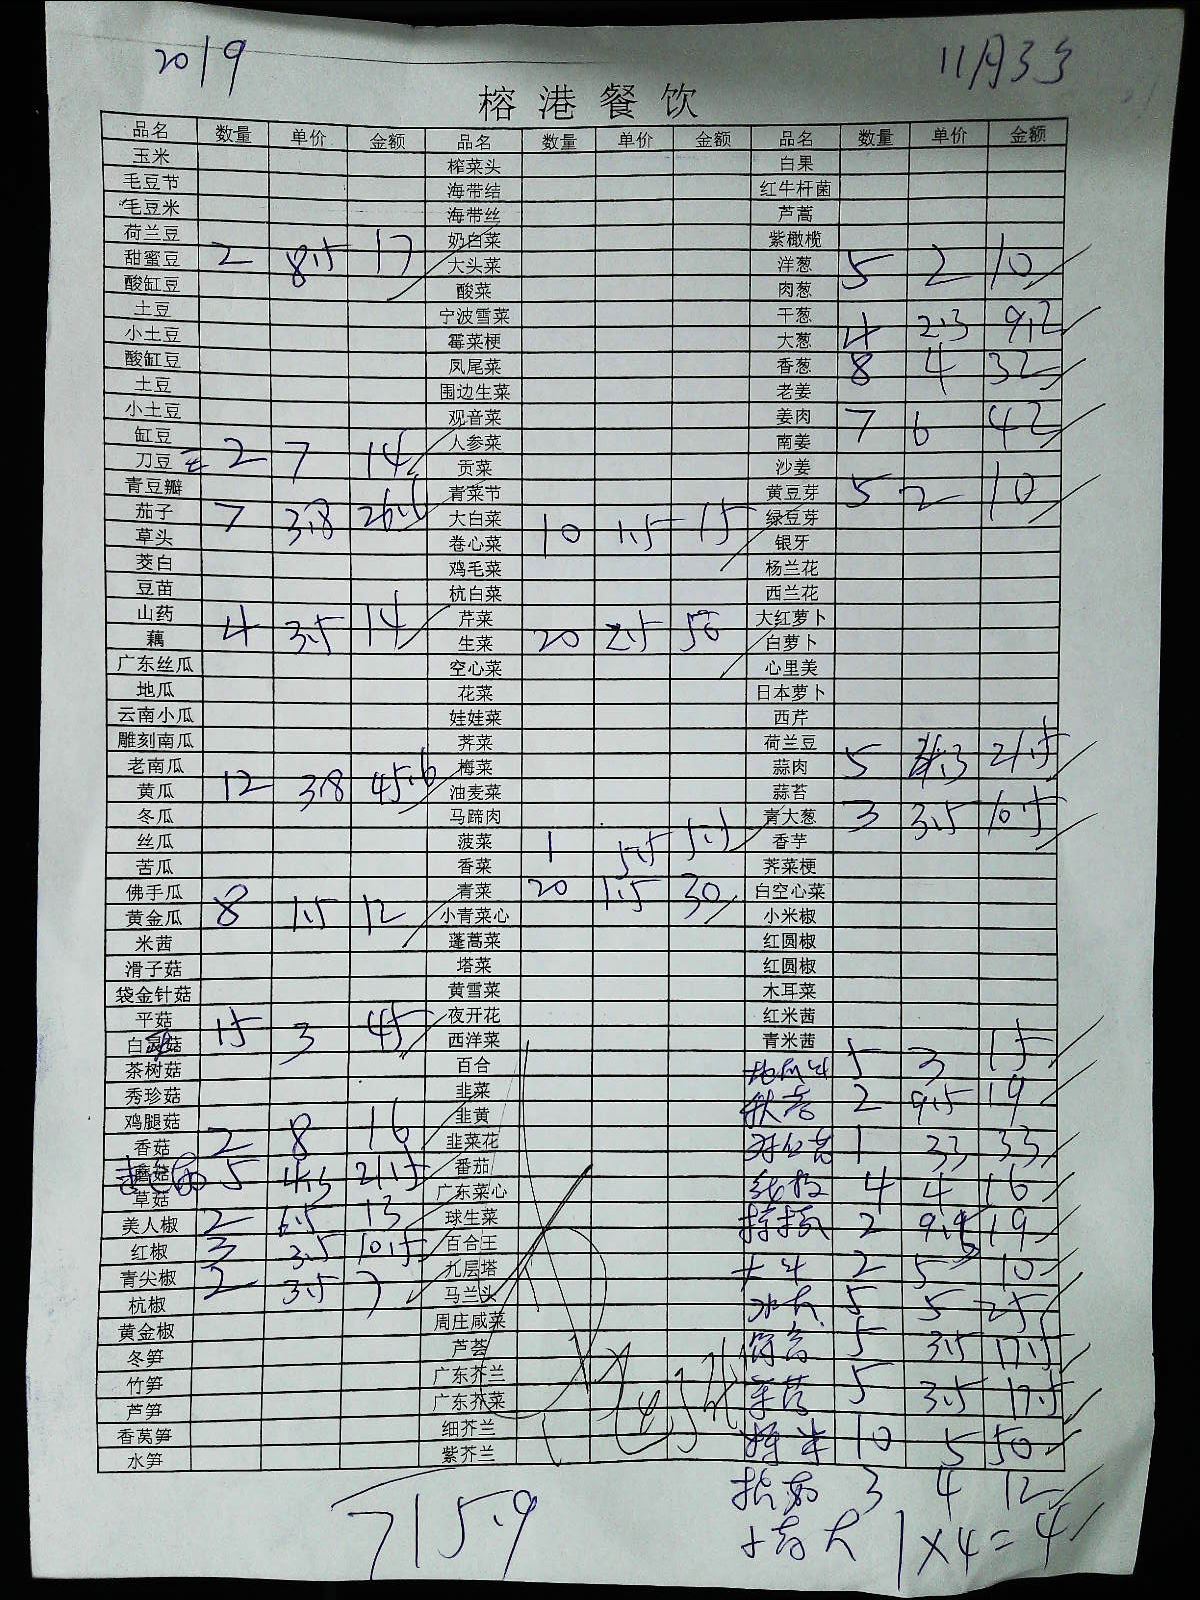 2019 11月3号
榕港餐饮
品名 数量 单价 金额 品名 数量 单价 金额 品名 数量 单价 金额
玉米 榨菜头 白果
毛豆节 海带结 红牛杆菌
毛豆米 海带丝 芦蒿
荷兰豆 奶白菜 紫橄榄
甜蜜豆 2 8.5 17 大头菜 洋葱 5 2 10
酸缸豆 酸菜 肉葱
土豆 宁波雪菜 干葱
小土豆 霉菜梗 大葱 4 2.3 9.2
酸缸豆 凤尾菜 香葱 8 4 32
土豆 围边生菜 老姜
小土豆 观音菜 姜肉 7 6 42
缸豆 人参菜 南姜
刀豆 2 7 14 贡菜 沙姜
青豆瓣 青菜节 黄豆芽 5 2 10
茄子 7 3.8 26.6 大白菜 绿豆芽
草头 卷心菜 10 1.5 15 银牙
茭白 鸡毛菜 杨兰花
豆苗 杭白菜 西兰花
山药 芹菜 大红萝卜
藕 4 3.5 14 生菜 20 2.5 50 白萝卜
广东丝瓜 空心菜 心里美
地瓜 花菜 日本萝卜
云南小瓜 娃娃菜 西芹
雕刻南瓜 荠菜 荷兰豆
老南瓜 梅菜 蒜肉 5 4.3 21.5
黄瓜 12 3.8 45.6 油麦菜 蒜苔
冬瓜 马蹄肉 青大葱 3 3.5 10.5
丝瓜 菠菜 1 5.5 5.5 香芋
苦瓜 香菜 荠菜梗
佛手瓜 青菜 20 1.5 30 白空心菜
黄金瓜 8 1.5 12 小青菜心 小米椒
米茜 蓬蒿菜 红圆椒
滑子菇 塔菜 红圆椒
袋金针菇 黄雪菜 木耳菜
平菇 夜开花 红米茜
白灵菇 15 3 45 西洋菜 青米茜
茶树菇 百合 5 3 15
秀珍菇 韭菜 2 9.5 19
鸡腿菇 韭黄
香菇 2 8 16 韭菜花 1 33 33
蘑菇 5 4.3 21.5 番茄
草菇 广东菜心 4 4 16
美人椒 2 6.5 13 球生菜 2 9.5 19
红椒 3 3.5 10.5 百合王
青尖椒 2 3.5 7 九层塔 2 5 10
杭椒 马兰头 5 5 25
黄金椒 周庄咸菜
冬笋 芦荟 5 3.5 17.5
竹笋 广东芥兰
芦笋 广东芥菜 5 3.5 17.5
香莴笋 细芥兰 10 5 50
水笋 紫芥兰
3 4 12
715.9 1×4=4